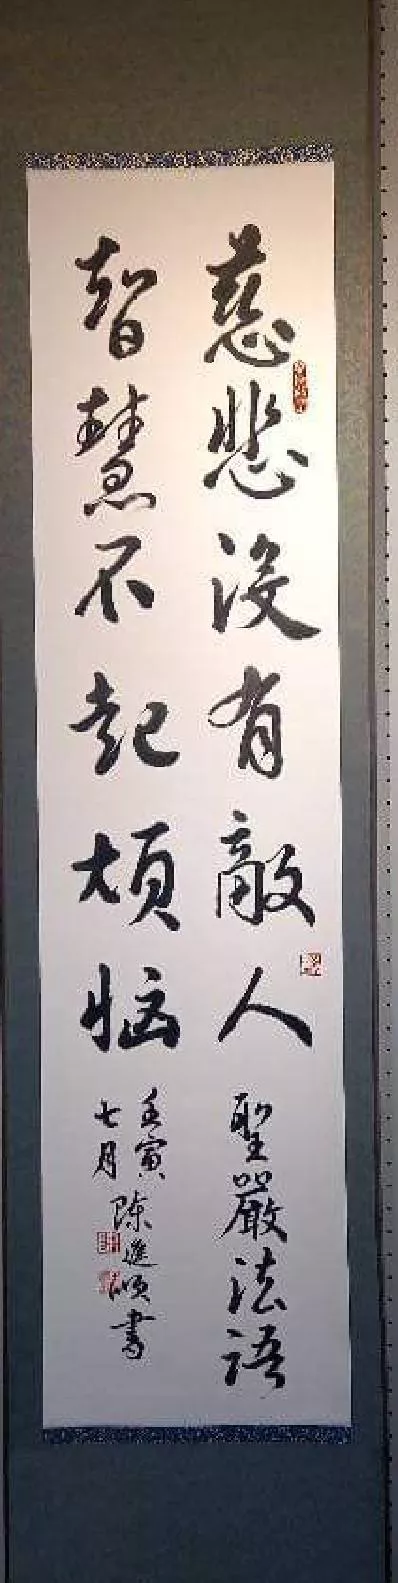 慈悲沒有敵人
聖嚴法語
智慧不起煩惱
壬寅
七月
陳進順書